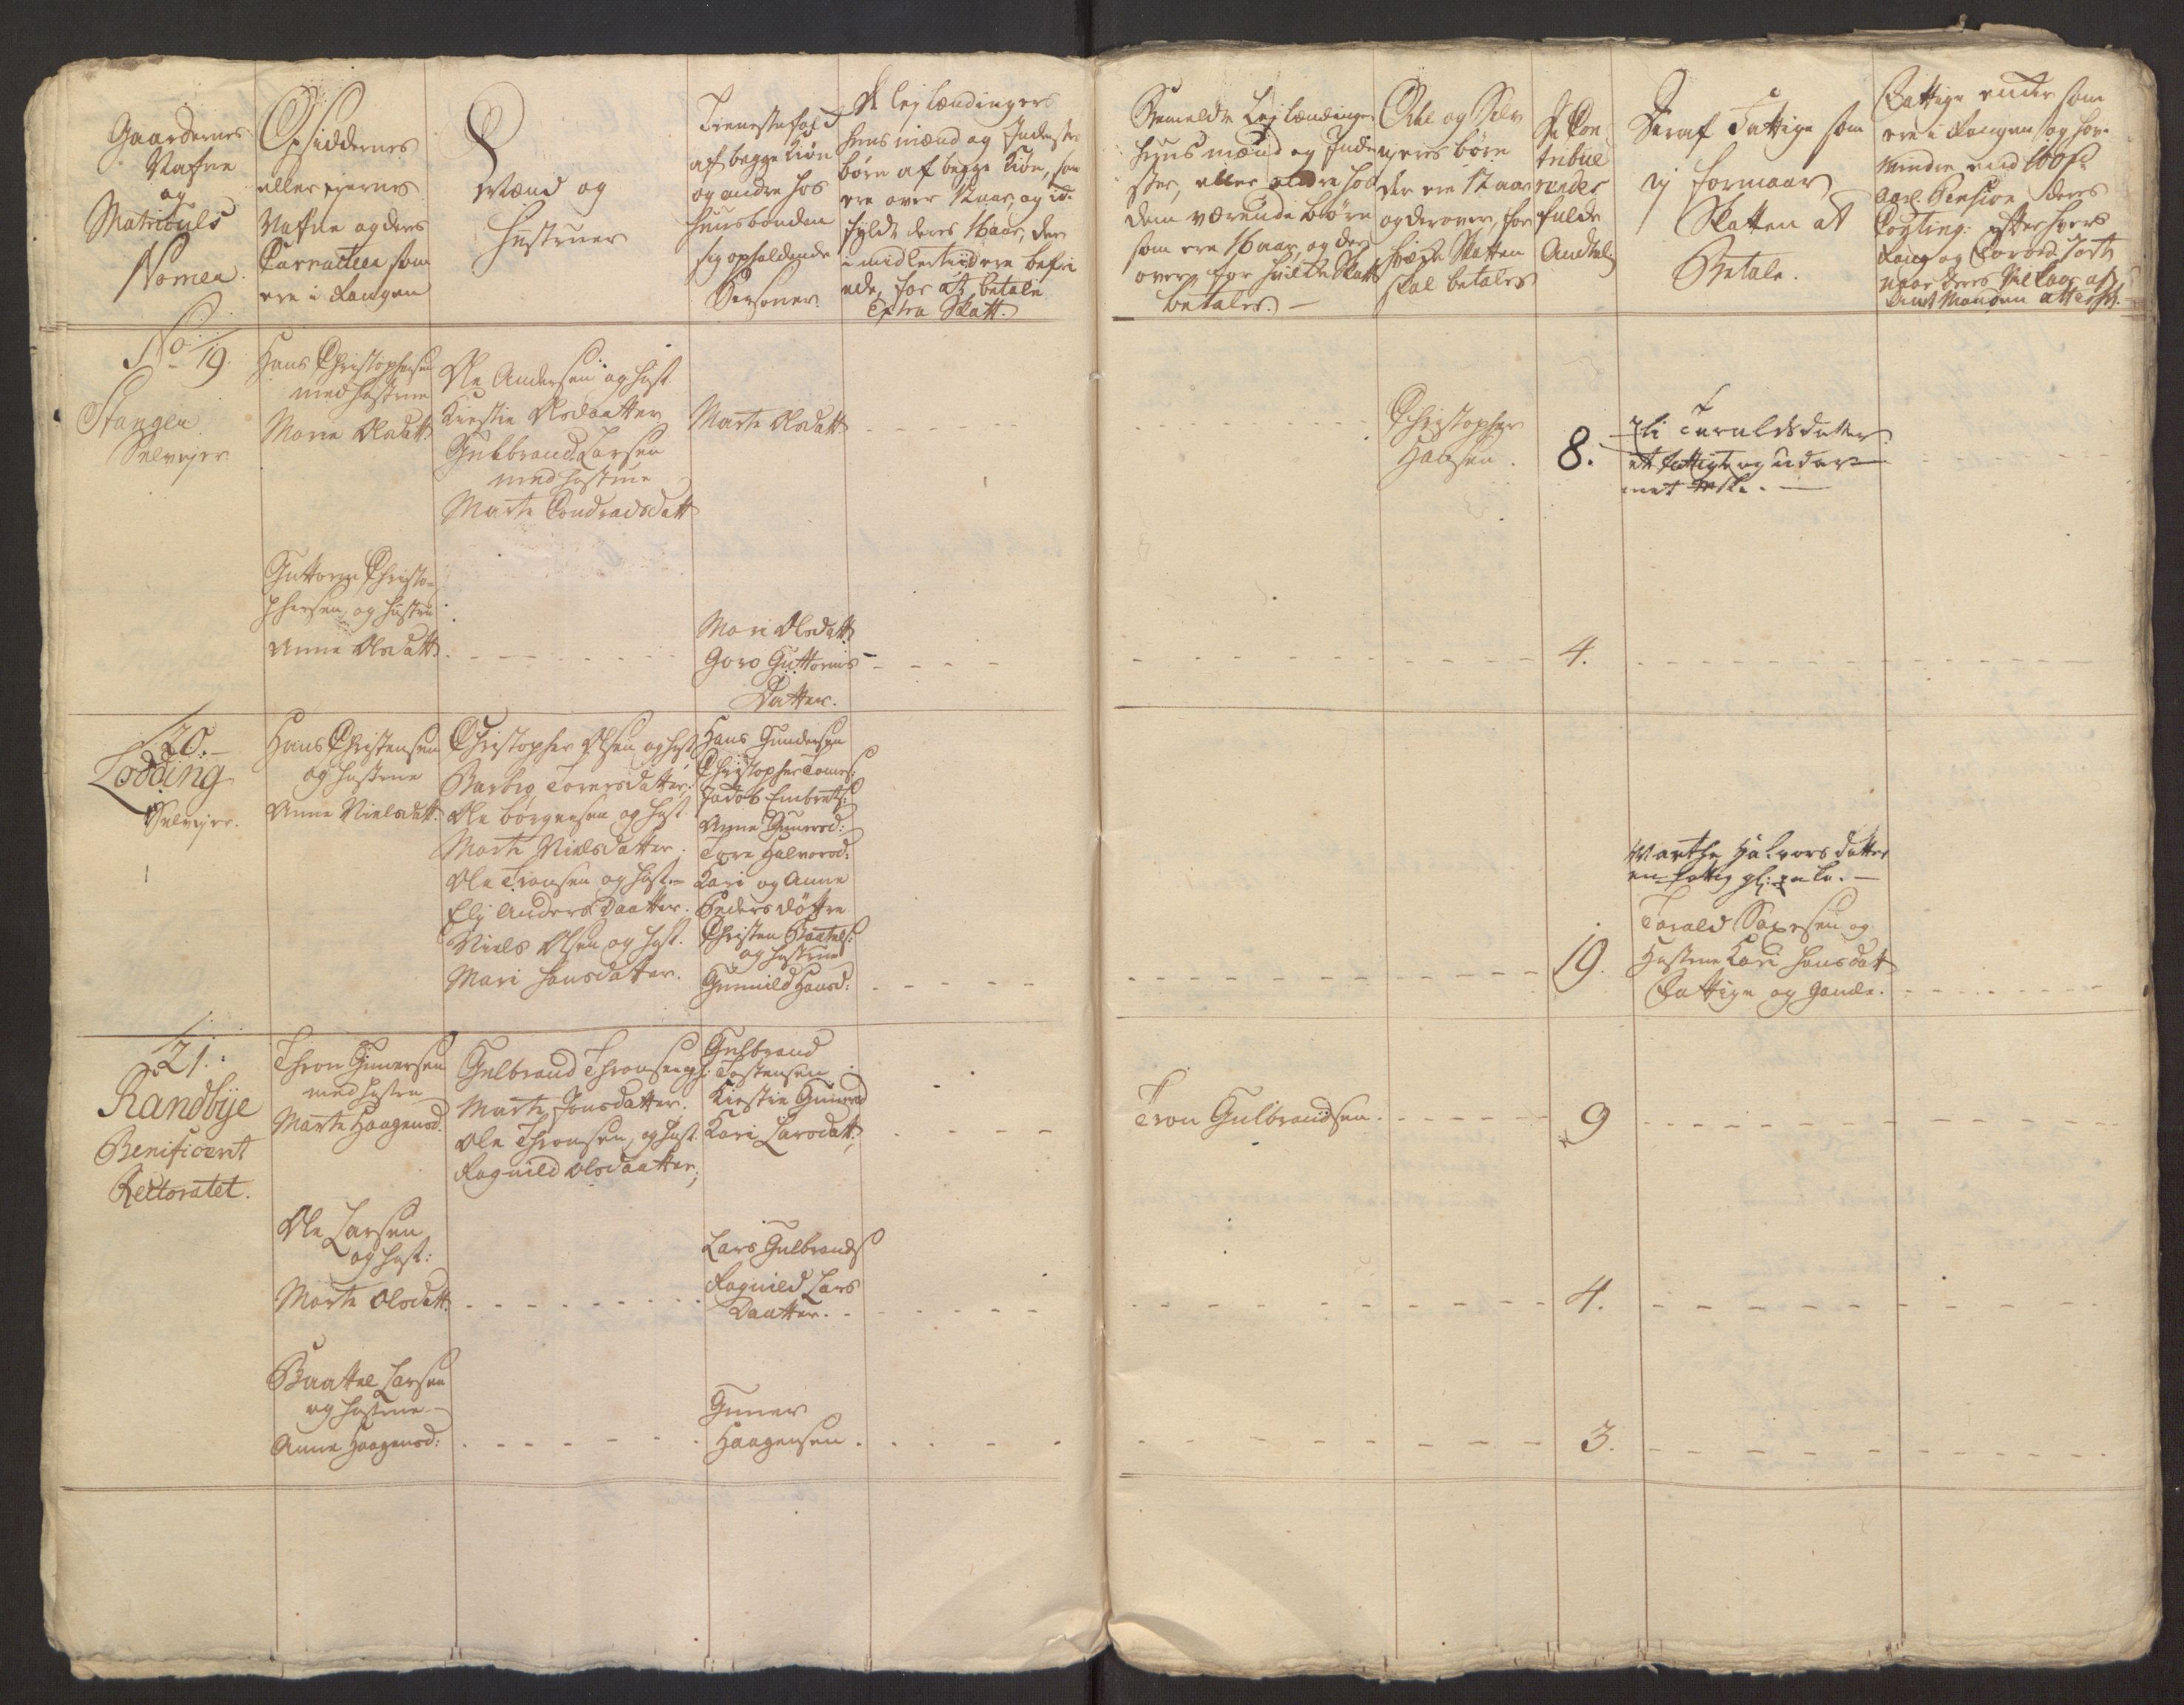 Gaardernes
Nafne
og
Matriculs
Nomer.
Opsiddernes
eller ejernes
Nafne og deres
Caracteer som
ere i Rangen
Mænd og
Hustruer
Tienestefolk
af begge Kiøn
og andre hos
Huusbonden
sig opholdende
Personer.
Lejlændingers
Huusmænd og Inderster
børn af begge Kiøn, som
ere over 12 aar, og ej
fyldt deres 16 aar, der
imidlertiid ere befri
ede for at betale
Extra Skatt.
Bemeldte Lejlændinger
Huusmænd og Inder
ster, eller andre hos
dem værende børn
som ere 16 aar og der
over, for hvilke Skatt
betales.
Odel og Selv
ejeres børn
der ere 12 aar
og derover, for
hvilke Skatten
skal betales
De Con
tribue
rendes
fulde
Andtal
Deraf Fattige som
ej formaar
Skatten at
Betale.
Fattige Enker som
ere i Rangen og har
mindre end 100 r
aarl. Pension
No 19.
Stangen
Selvejer
Hans Christophersen
med hustrue
Marie Olsdatt:
Ole Andersen og hust.
Kirstie Olsdaatter
Gulbrand Larsen
med hustrue
Marte Condradsdatt
Marte Olsdatt.
Christopher
Hansen.
8.
Eli Taraldsdatter
et fattigt og
Guttorm Christo-
phersen og hustru
Anne Olsdatt:
Mari Olsdatt.
Goro Guttorms
Datter.
4.
20.
Lodding
Selvejer.
Hans Christensen
og hustrue
Anne Nielsdatt.
Christopher Olsen og hust
Ole Børgersen og hust.
Marte Nielsdatter.
Ole Tronsen og hust.
Elj Anders Daatter.
Niels Olsen og hust.
Mari Hansdatter.
Hans Gundersen
Christopher
Jacob Embrets:
Anne Gunersd:
Tore Halvorsd:
Kari og Anne
Peders døttre
Christen Baatels:
og hustrue
Gunnild Hansd:
19.
Marthe Halvors datter
en fattig
Tarald
hustrue Kari Hansdatt
Fattige og gamle.
21.
Randbye
Benificeret
Rectoratet.
Thron Gunersen
med hustru
Marte Haagensd.
Gulbrand Thronsen og h:
Marte Jonsdatter.
Ole Thronsen, og hust.
Ragnild Olsdaatter,
Gulbrand
Tostensen
Kirstie Gunersd
Kari Larsdatt,
Tron Gulbrandsen.
9
Ole Larsen
og hust:
Marte Olsdatt.
Lars Gulbrands
Ragnild Lars
Daatter.
4.
Baattel Larsen
og hustrue
Anne Haagensd:
Guner
Haagensen.
3.